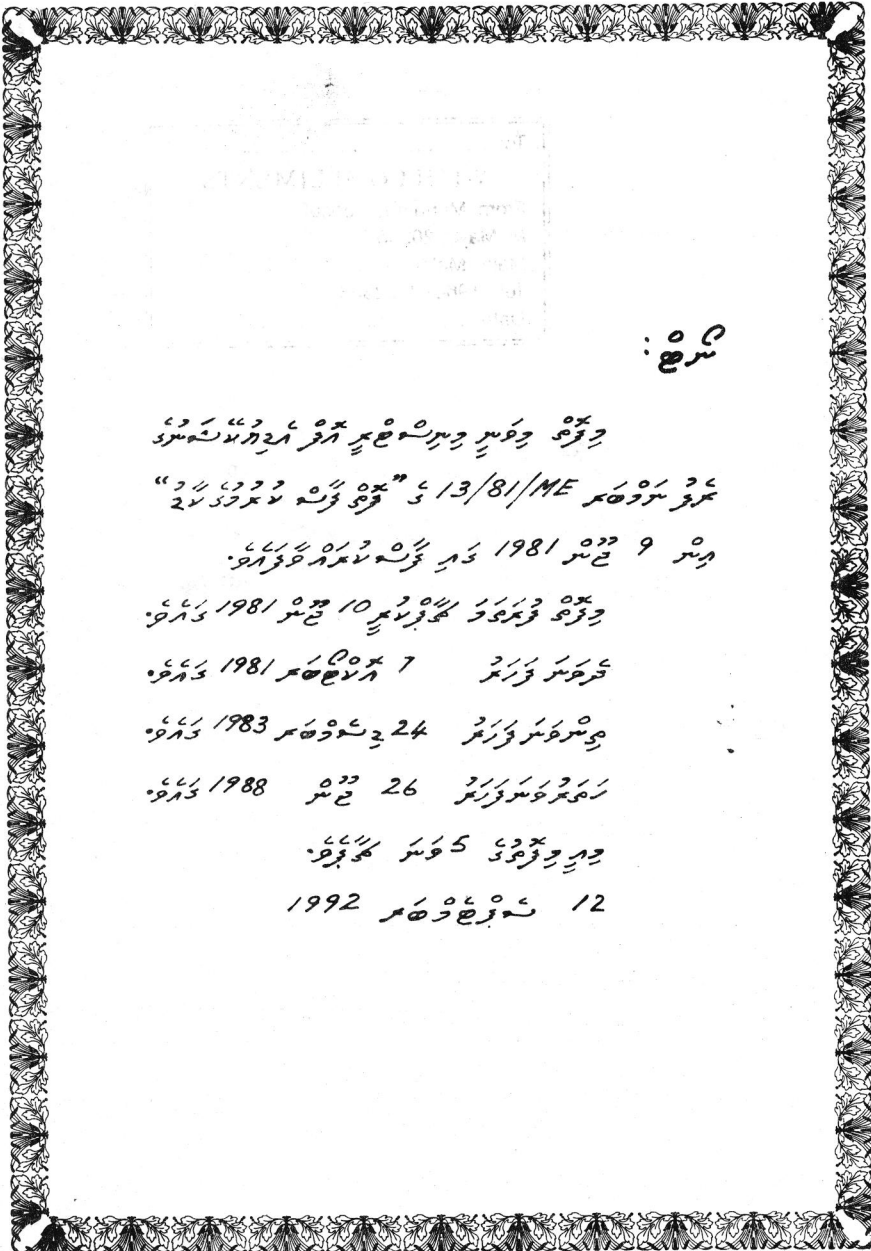 ނޯޓް:
މިފޮތް މިވަނީ މިނިސްޓްރީ އޮފް އެޑިޔުކޭޝަނުގެ
ރެފު ނަމްބަރ 13/81/ME ގެ "ފޮތް ފާސް ކުރުމުގެ ކާޑު"
އިން 9 ޖޫން 1981 ގައި ފާސްކުރައްވާފައެވެ.
މިފޮތް ފުރަތަމަ ޗާޕްކުރީ 10 ޖޫން 1981 ގައެވެ.
ދެވަނަ ފަހަރު 7 އޮކްޓޯބަރ 1981 ގައެވެ.
ތިންވަނަ ފަހަރު 24 ޑިސެމްބަރ 1983 ގައެވެ.
ހަތަރުވަނަ ފަހަރު 26 ޖޫން 1988 ގައެވެ.
މިއީ މިފޮތުގެ 5 ވަނަ ޗާޕެވެ.
12 ސެޕްޓެމްބަރ 1992